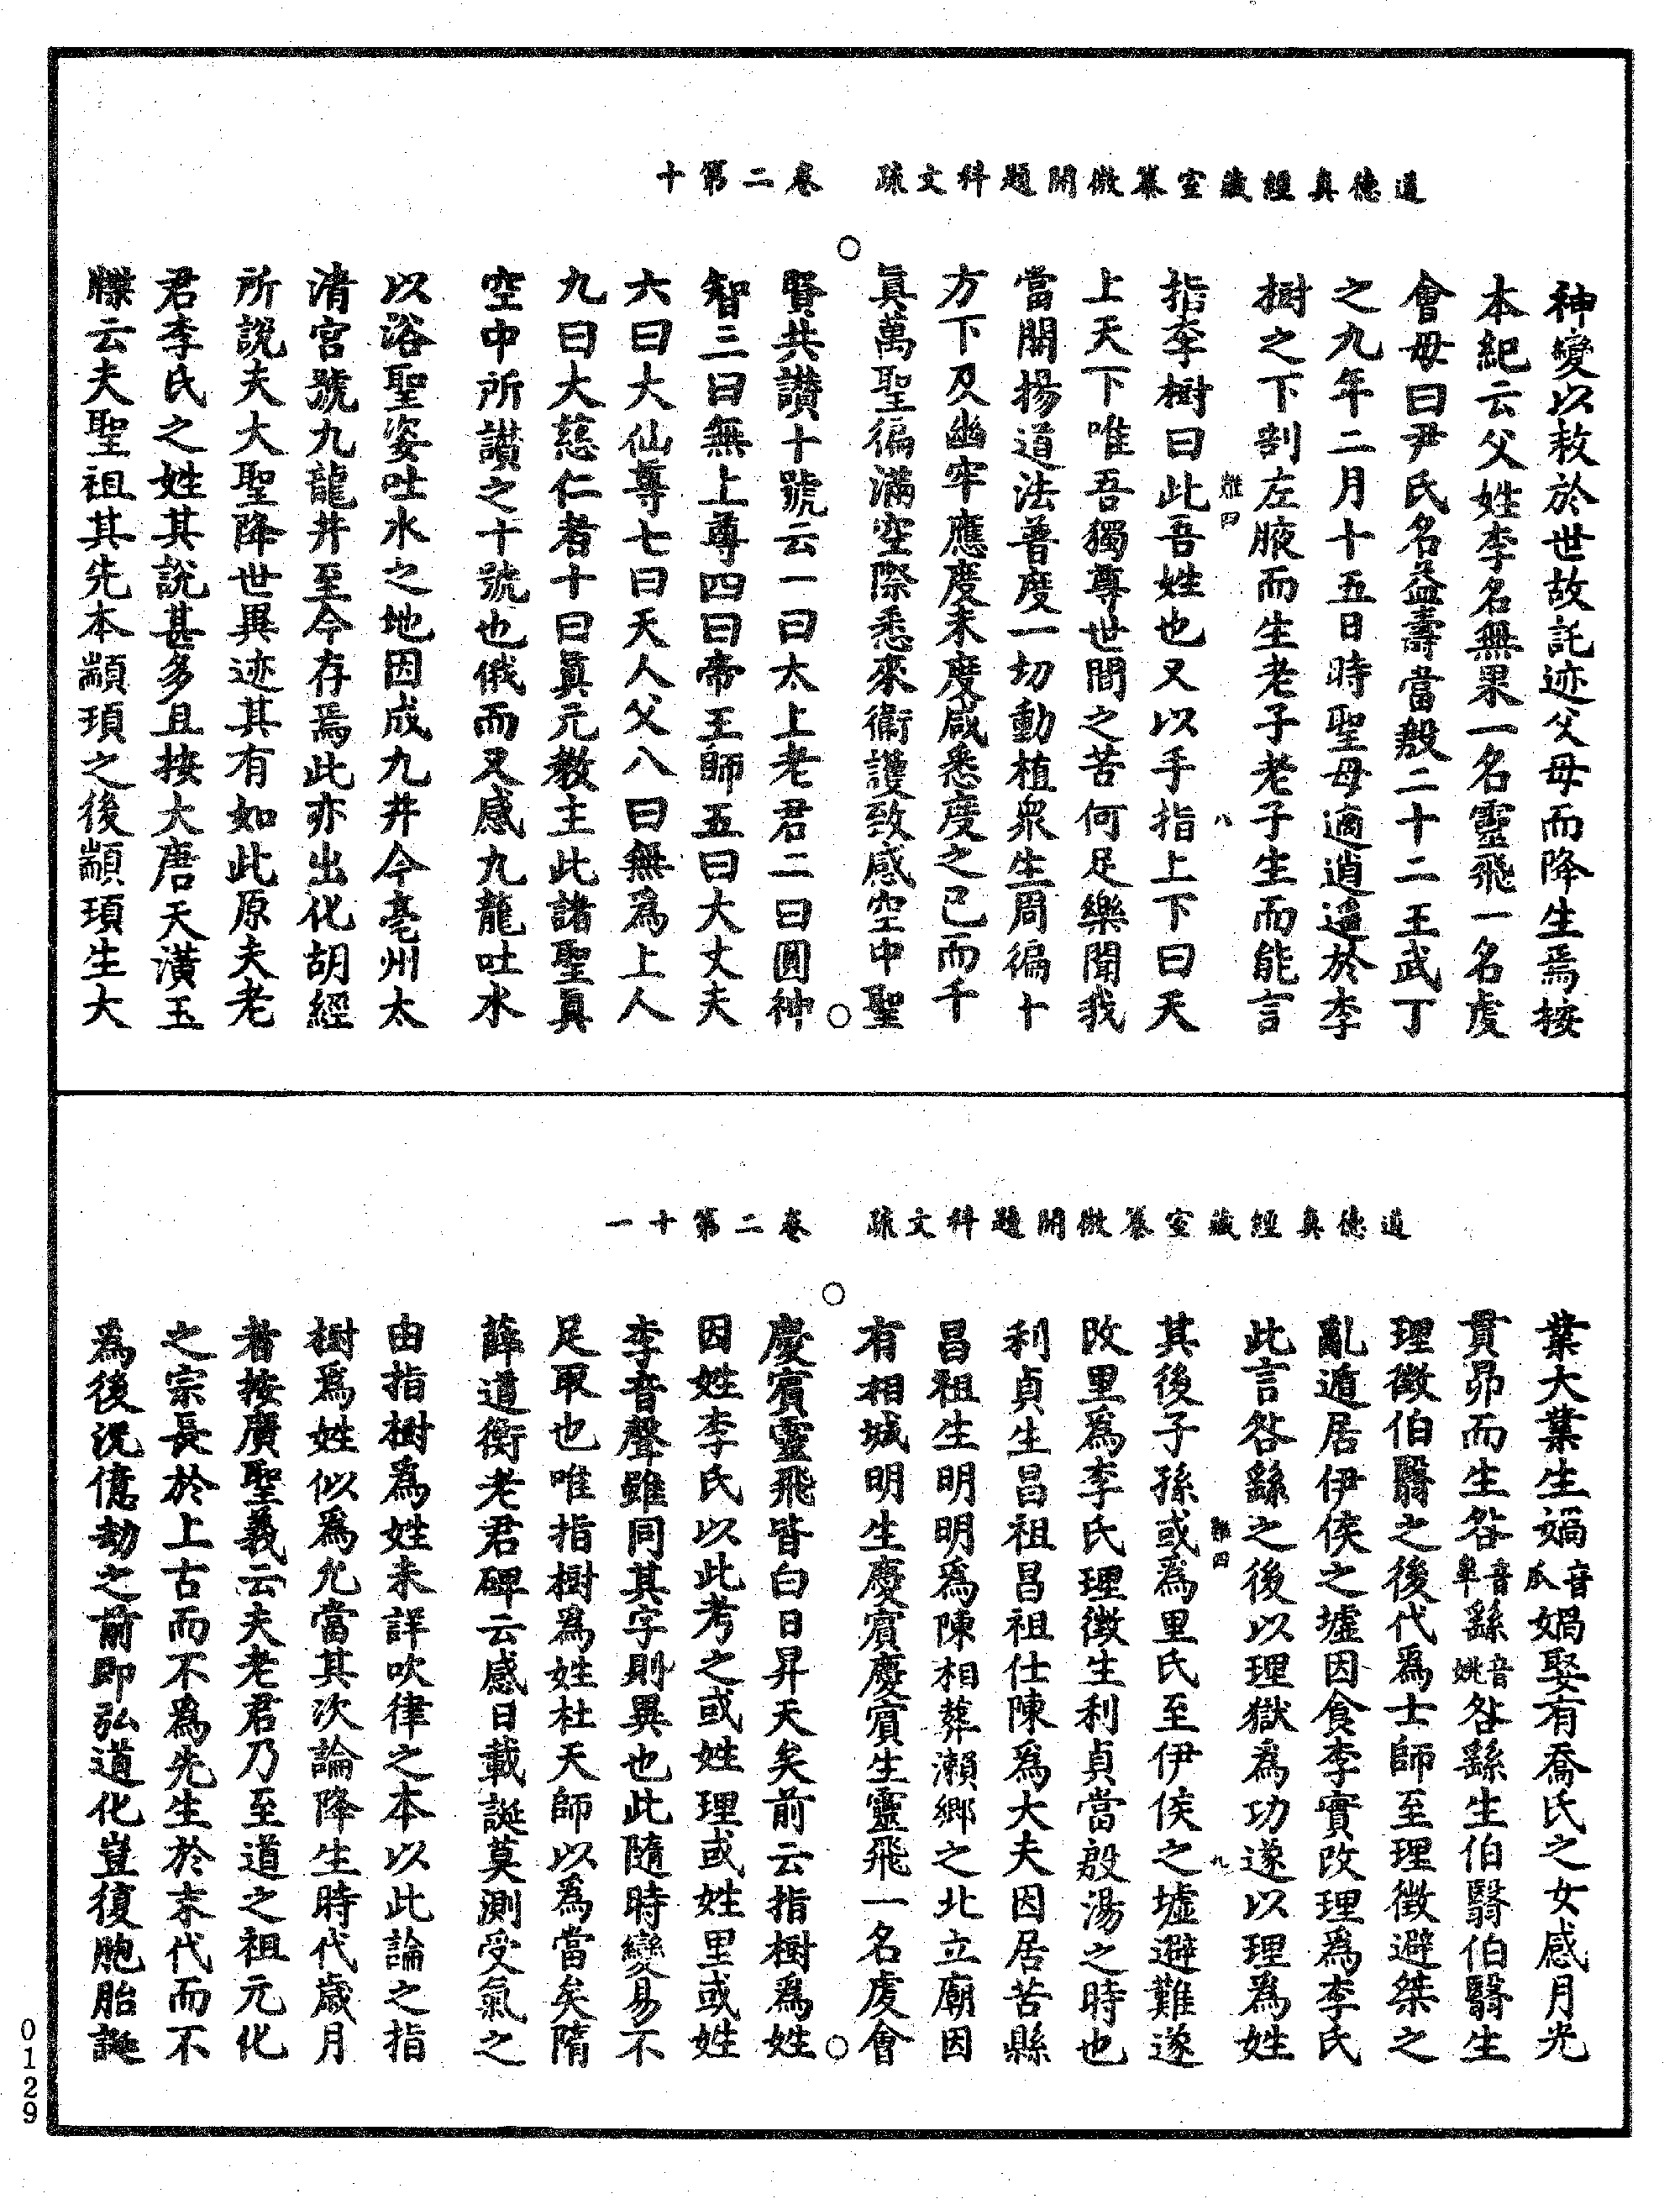 道德真經藏室纂微開題科文疏　卷二第十
神變以救於世故託迹父母而降生焉按
本紀云父姓李名無果一名靈飛一名虔
會母曰尹氏名益壽當殷二十二王武丁
之九年二月十五日時聖母適逍遥於李
樹之下剖左腋而生老子老子生而能言
難四　八
指李樹曰此吾姓也又以手指上下曰天
上天下唯吾獨尊世間之苦何足樂聞我
當開揚道法普度一切動植衆生周徧十
方下及幽牢應度未度咸悉度之已而千
眞萬聖徧滿空際悉來衞護致感空中聖
賢共讚十號云一曰太上老君二曰圓神
智三曰無上尊四曰帝王師五曰大丈夫
六曰大仙尊七曰天人父八曰無爲上人
九曰大慈仁者十曰眞元教主此諸聖眞
空中所讃之十號也俄而又感九龍吐水
以浴聖姿吐水之地因成九井今亳州太
清宫號九龍井至今存焉此亦出化胡經
所說夫大聖降世異迹其有如此原夫老
君李氏之姓其説甚多且按大唐天潢玉
牒云夫聖祖其先本顓頊之後顓頊生大
道德真經藏室纂微開題科文疏　卷二第十一
業大業生媧音瓜媧娶有喬氏之女感月光
貫昴而生咎音皐繇音姚咎繇生伯翳伯翳生
理徵伯翳之後代爲士師至理徵避桀之
亂遁居伊侯之墟因食李實改理爲李氏
此言咎繇之後以理獄爲功遂以理爲姓
難四　九
其後子孫或爲里氏至伊侯之墟避難遂
改里爲李氏理徵生利貞當殷湯之時也
利貞生昌祖昌祖仕陳爲大夫因居苦縣
昌祖生明明爲陳相葬瀨郷之北立廟因
有相城明生慶賓慶賓生靈飛一名虔會
慶賓靈飛皆白日昇天矣前云指樹爲姓
因姓李氏以此考之或姓理或姓里或姓
李音聲雖同其字則異也此隨時變易不
足取也唯指樹爲姓杜天師以爲當矣隋
薛道衡老君碑云感日載誕莫測受氣之
由指樹爲姓未詳吹律之本以此論之指
樹爲姓似爲允當其次論降生時代歲月
者按廣聖義云夫老君乃至道之祖元化
之宗長於上古而不爲先生於末代而不
爲後況億劫之前即弘道化豈復胞胎誕
0129